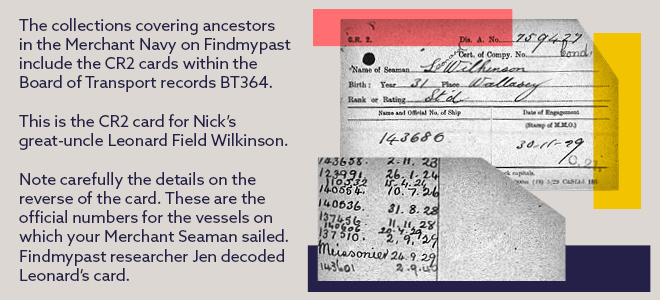 The collections covering ancestors
in the Merchant Navy on Findmypast
include the CR2 cards within the
Board of Transport records BT364.
This is the CR2 card for Nick's
great-uncle Leonard Field Wilkinson.
Note carefully the details on the
reverse of the card. These are the
official numbers for the vessels on
which your Merchant Seaman sailed.
Findmypast researcher Jen decoded
Leonard's card.
C.R. 2. Dis. A. No. 759427
Cert. of Compy. No.
Name of Seaman Wilkinson
Birth: Year 31 Place Wallasey
Rank or Rating Std
Name and Official No. of Ship Date of Engagement
(Stamp of M.M.O.)
143686 30.11.29
143658. 2.11.23
123991. 26.1.24
110332 15.4.24
140564. 10.7.26
140636. 31.8.28
137456 11.11.28
137510. 2.9.29
Meissonier 24.9.29
143601 2.9.40